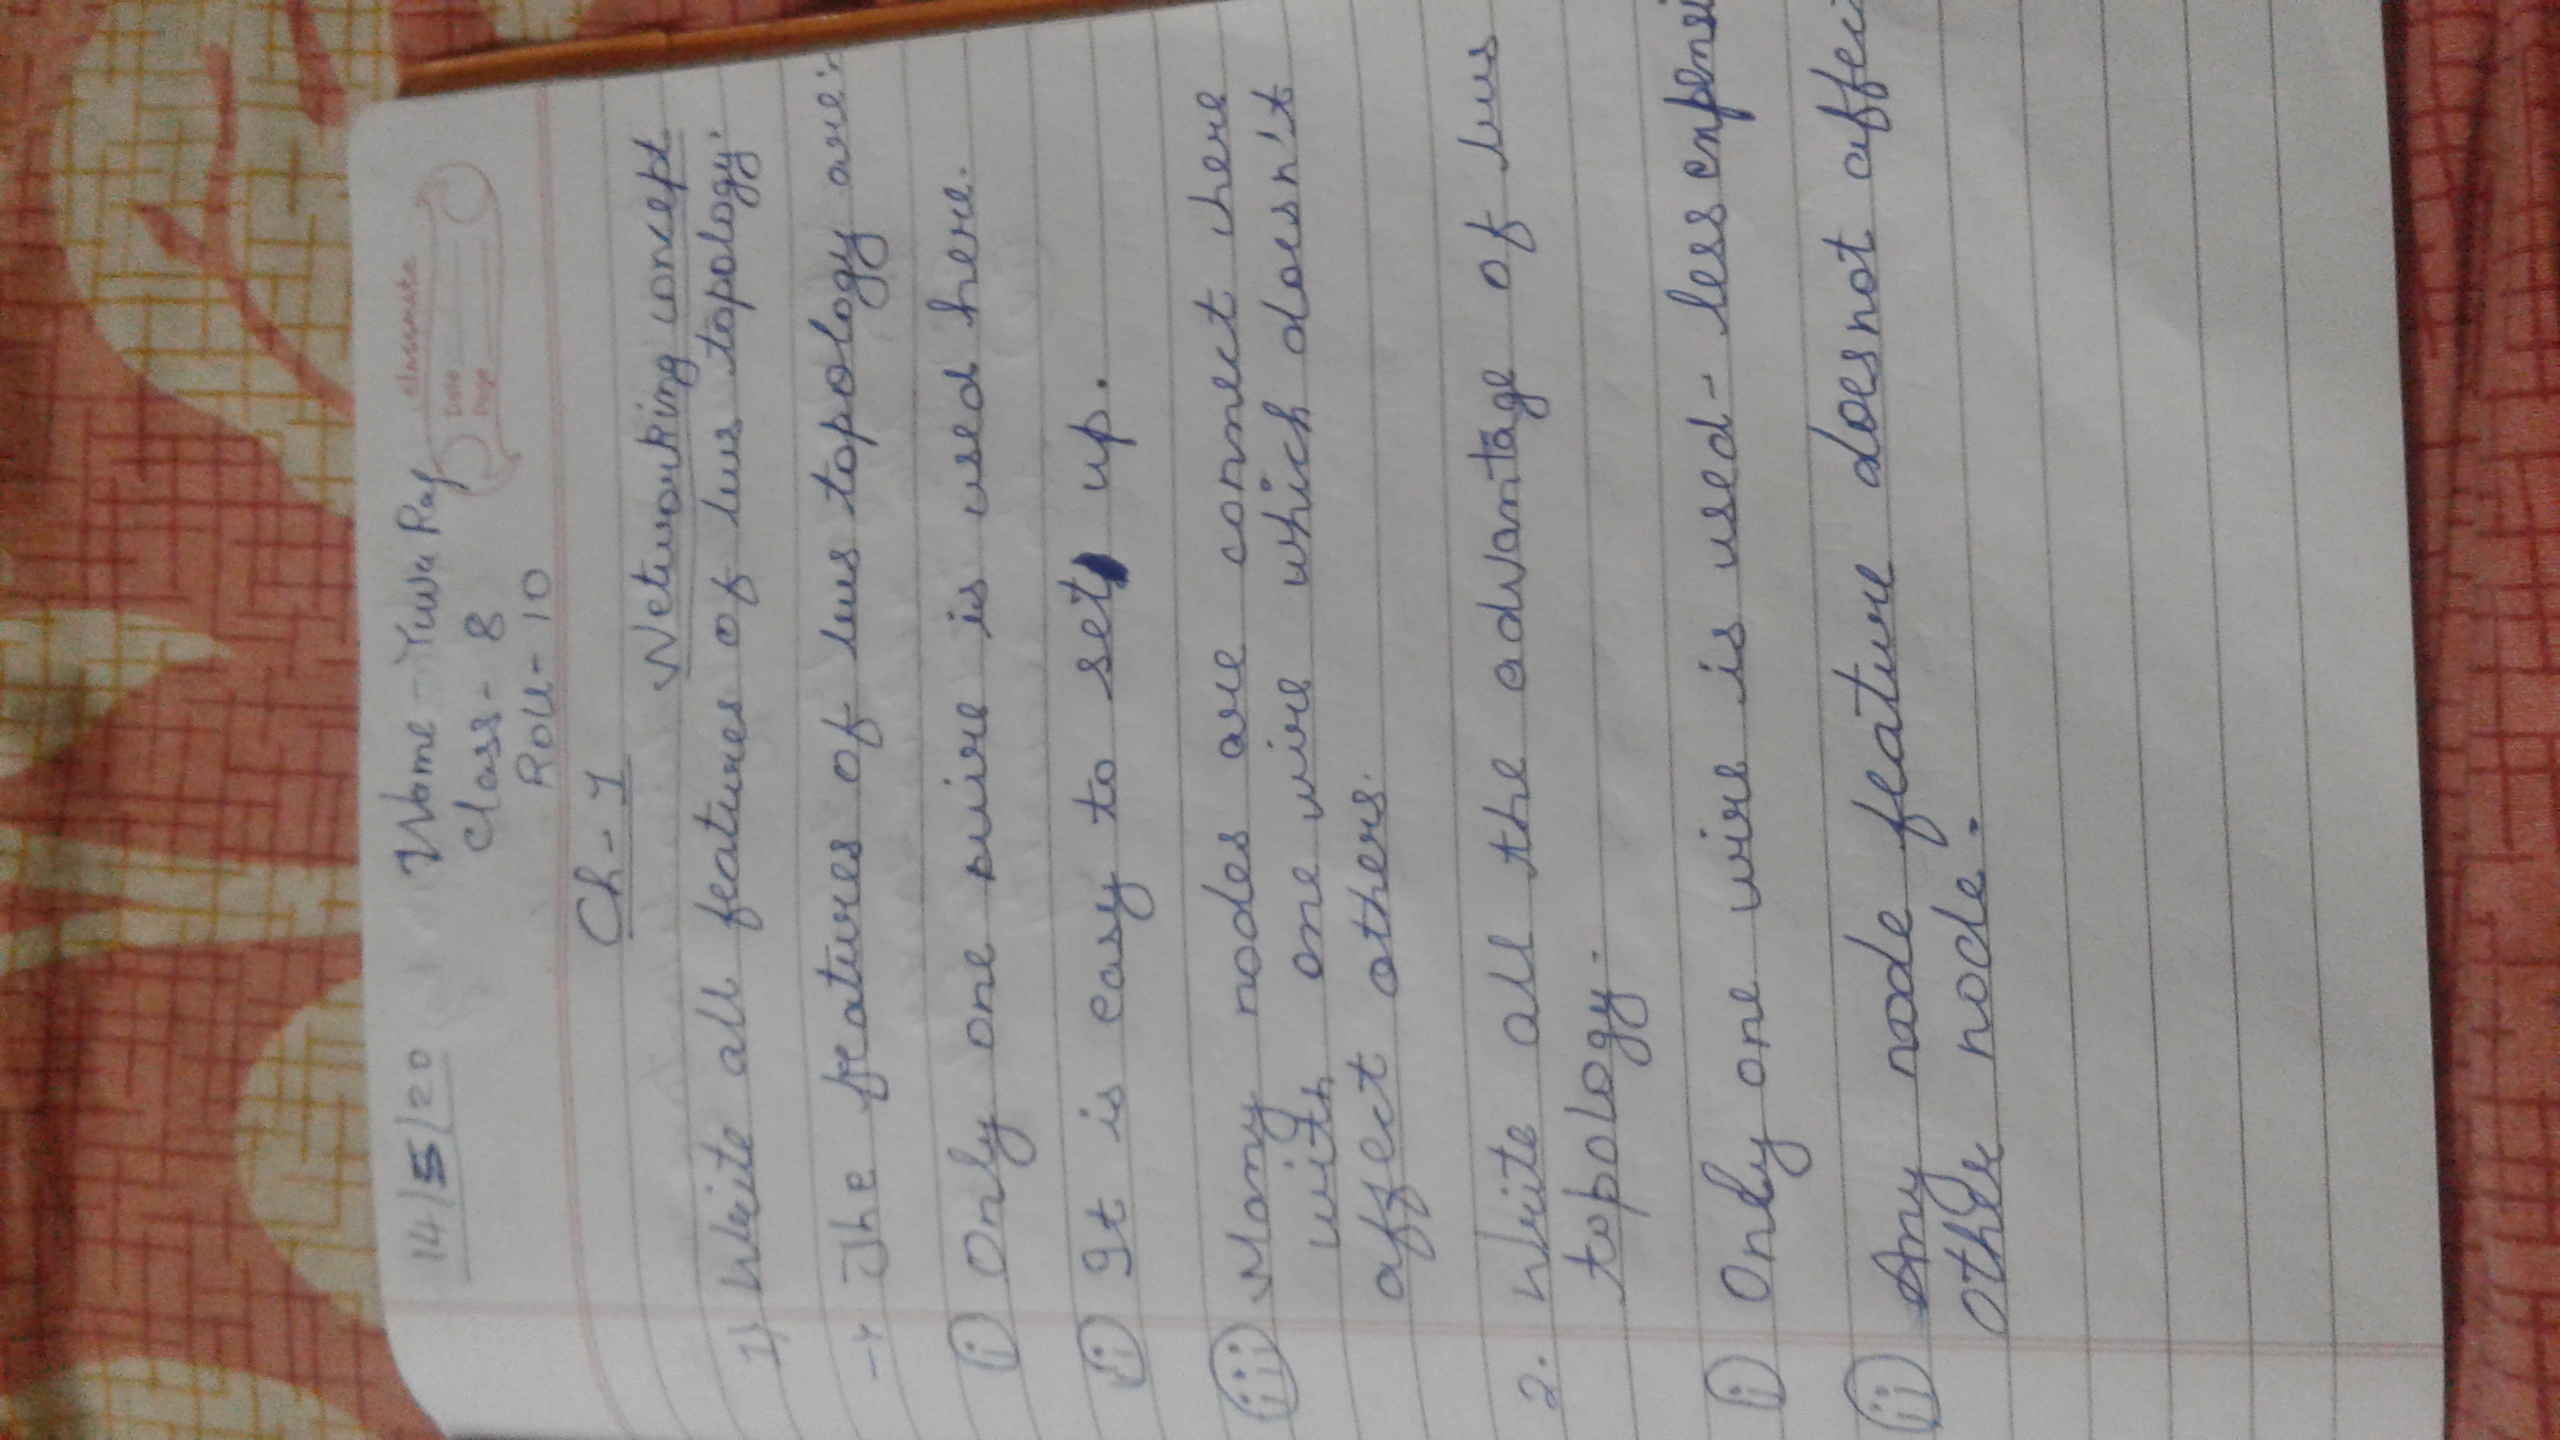 14/5/20 Name - Yuva Raj
Class - 8
Roll - 10
classmate
Date
Page
Ch - 1
Networking concept
1) Write all features of bus topology.
→ The features of bus topology are :-
(i) Only one wire is used here.
(ii) It is easy to set up.
(iii) Many nodes are connect here
with one wire which doesn't
affect others.
2. Write all the advantage of bus
topology.
(i) Only one wire is used - less
(ii) Any node feature doesnot
other node.